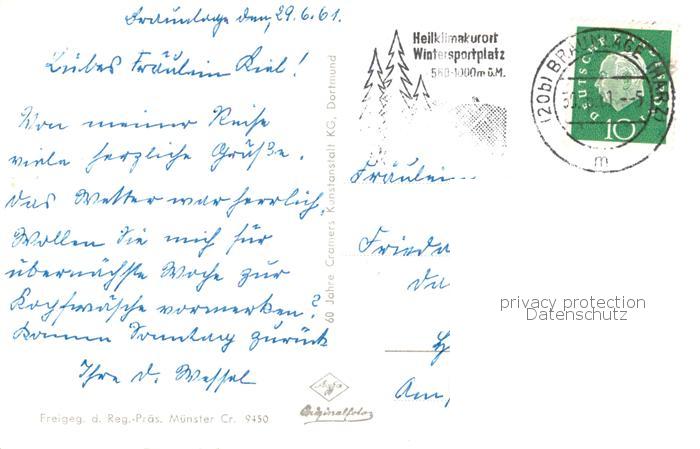 Braunlage den, 29.6.61.
Liebes Fräulein Kiel!
Von meiner Reise
viele herzliche Grüße.
Das Wetter war herrlich.
Wollen Sie mich für
übernächste Woche zur
Kopfwäsche vormerken?
Komme Sonntag zurück
Ihre D. Wessel
Freigeg. d. Reg.-Präs. Münster Cr. 9450
60 Jahre Cramers Kunstanstalt KG, Dortmund
Originalfoto
Heilklimakurort
Wintersportplatz
560-1000m ü.M.
(20b) BRAUNLAGE (HARZ)
m
DEUTSCHE
10
Fräulein
Frieda
Am
privacy protection
Datenschutz